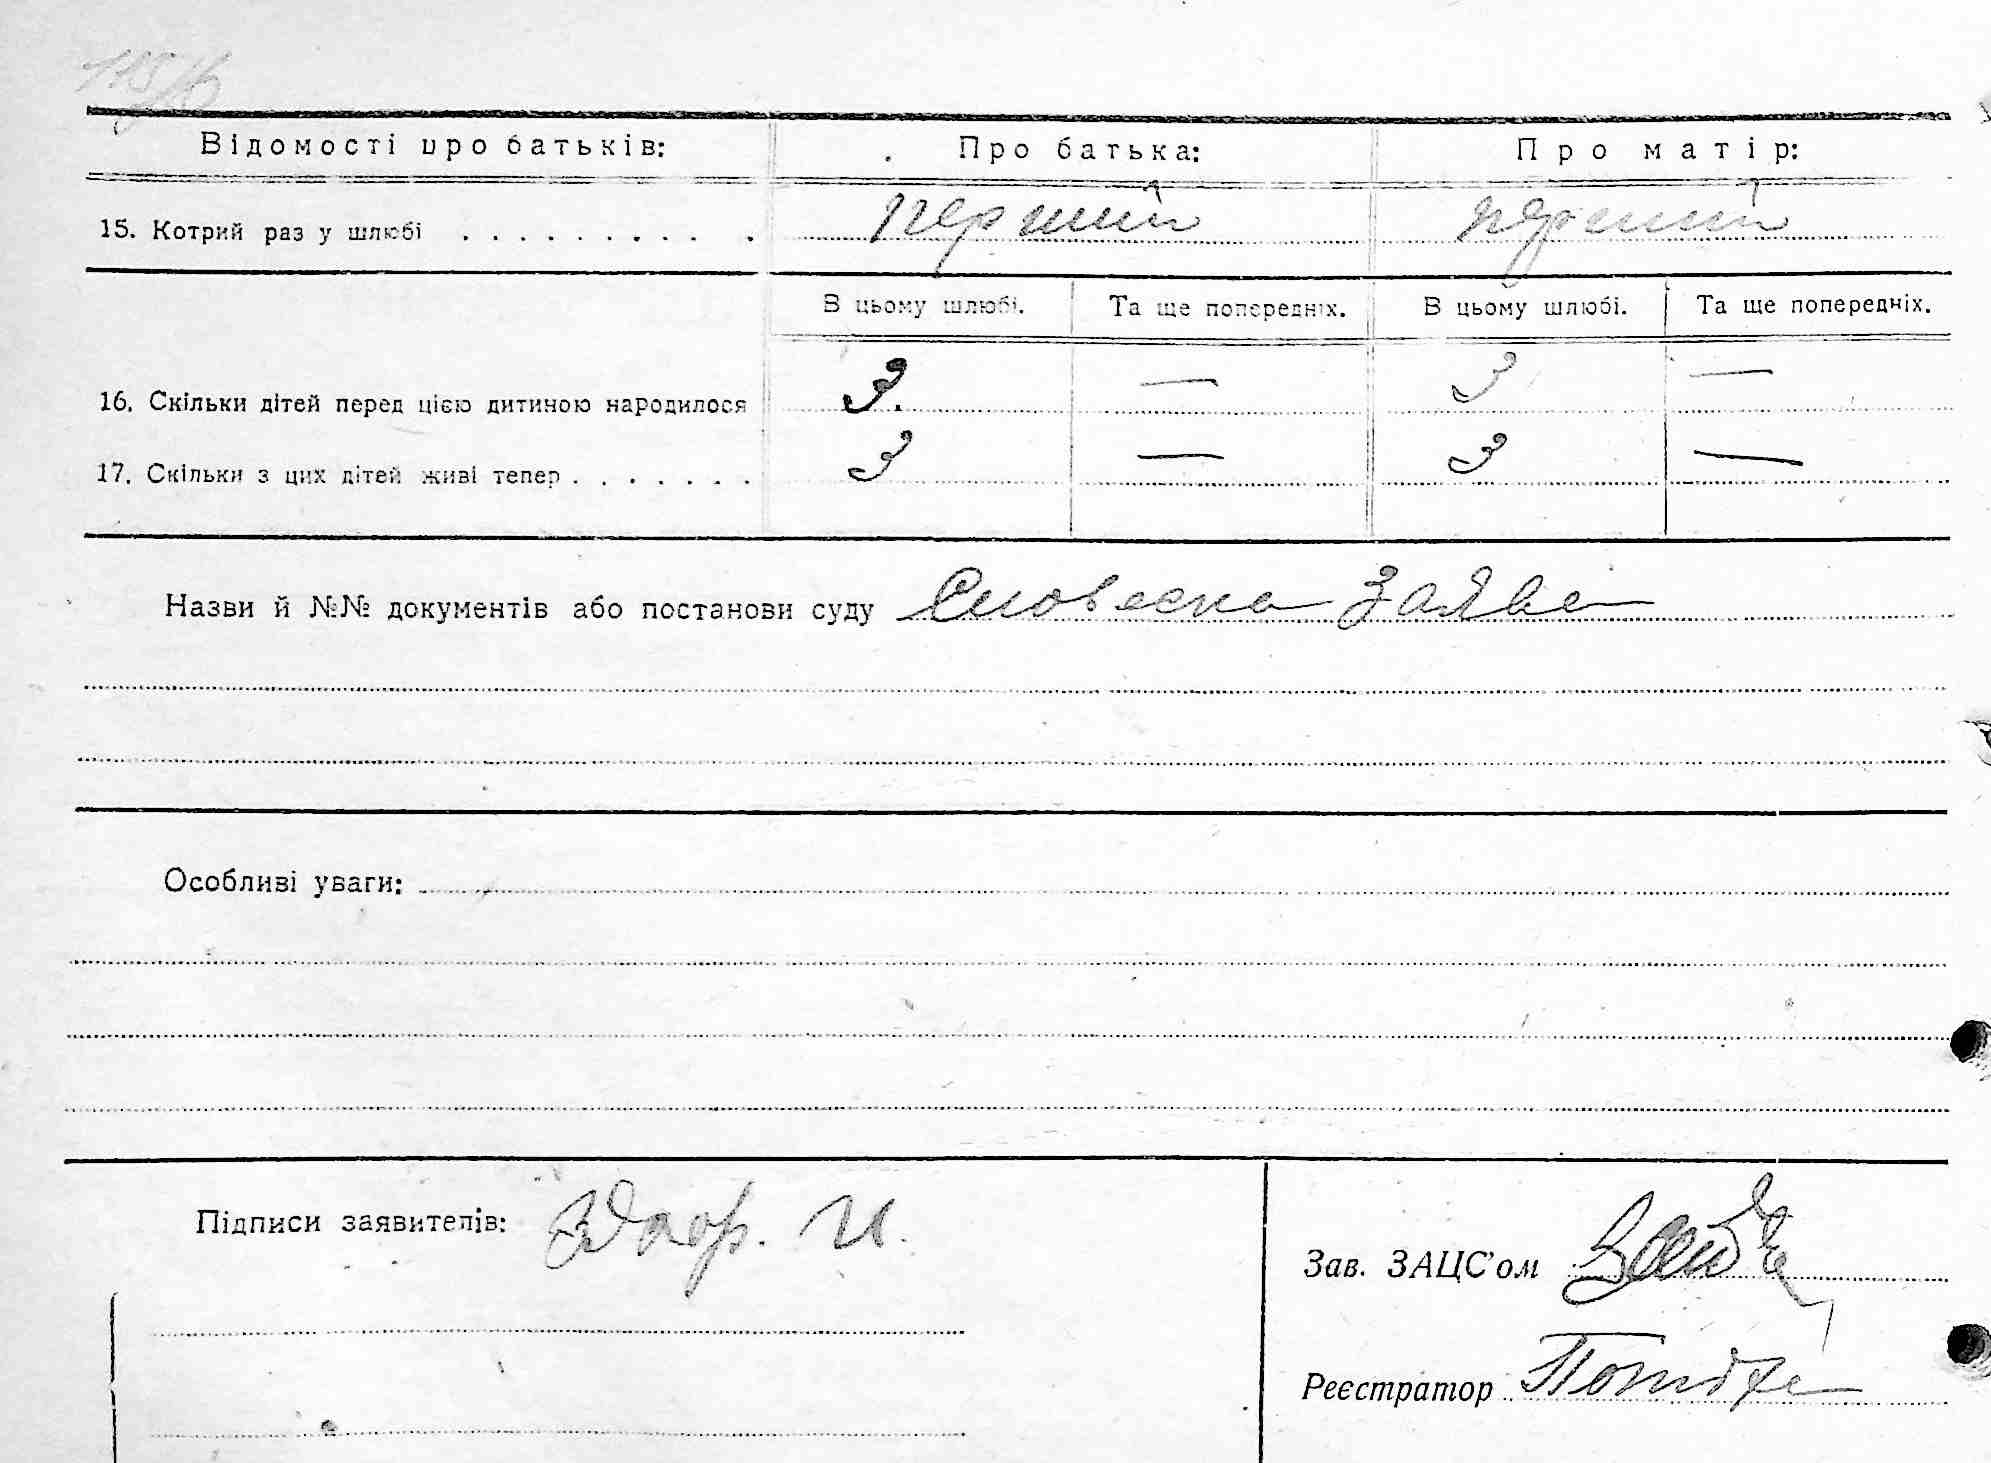 Відомості про батьків: Про батька: Про матір:
15. Котрий раз у шлюбі . . . . . . . . . . перший перший
В цьому шлюбі. Та ще попередніх. В цьому шлюбі. Та ще попередніх.
16. Скільки дітей перед цією дитиною народилося 3. — 3 —
17. Скільки з цих дітей живі тепер . . . . . . . 3 — 3 —
Назви й №№ документів або постанови суду Словесна заява
Особливі уваги:
Підписи заявителів:
Зав. ЗАЦС'ом
Реєстратор